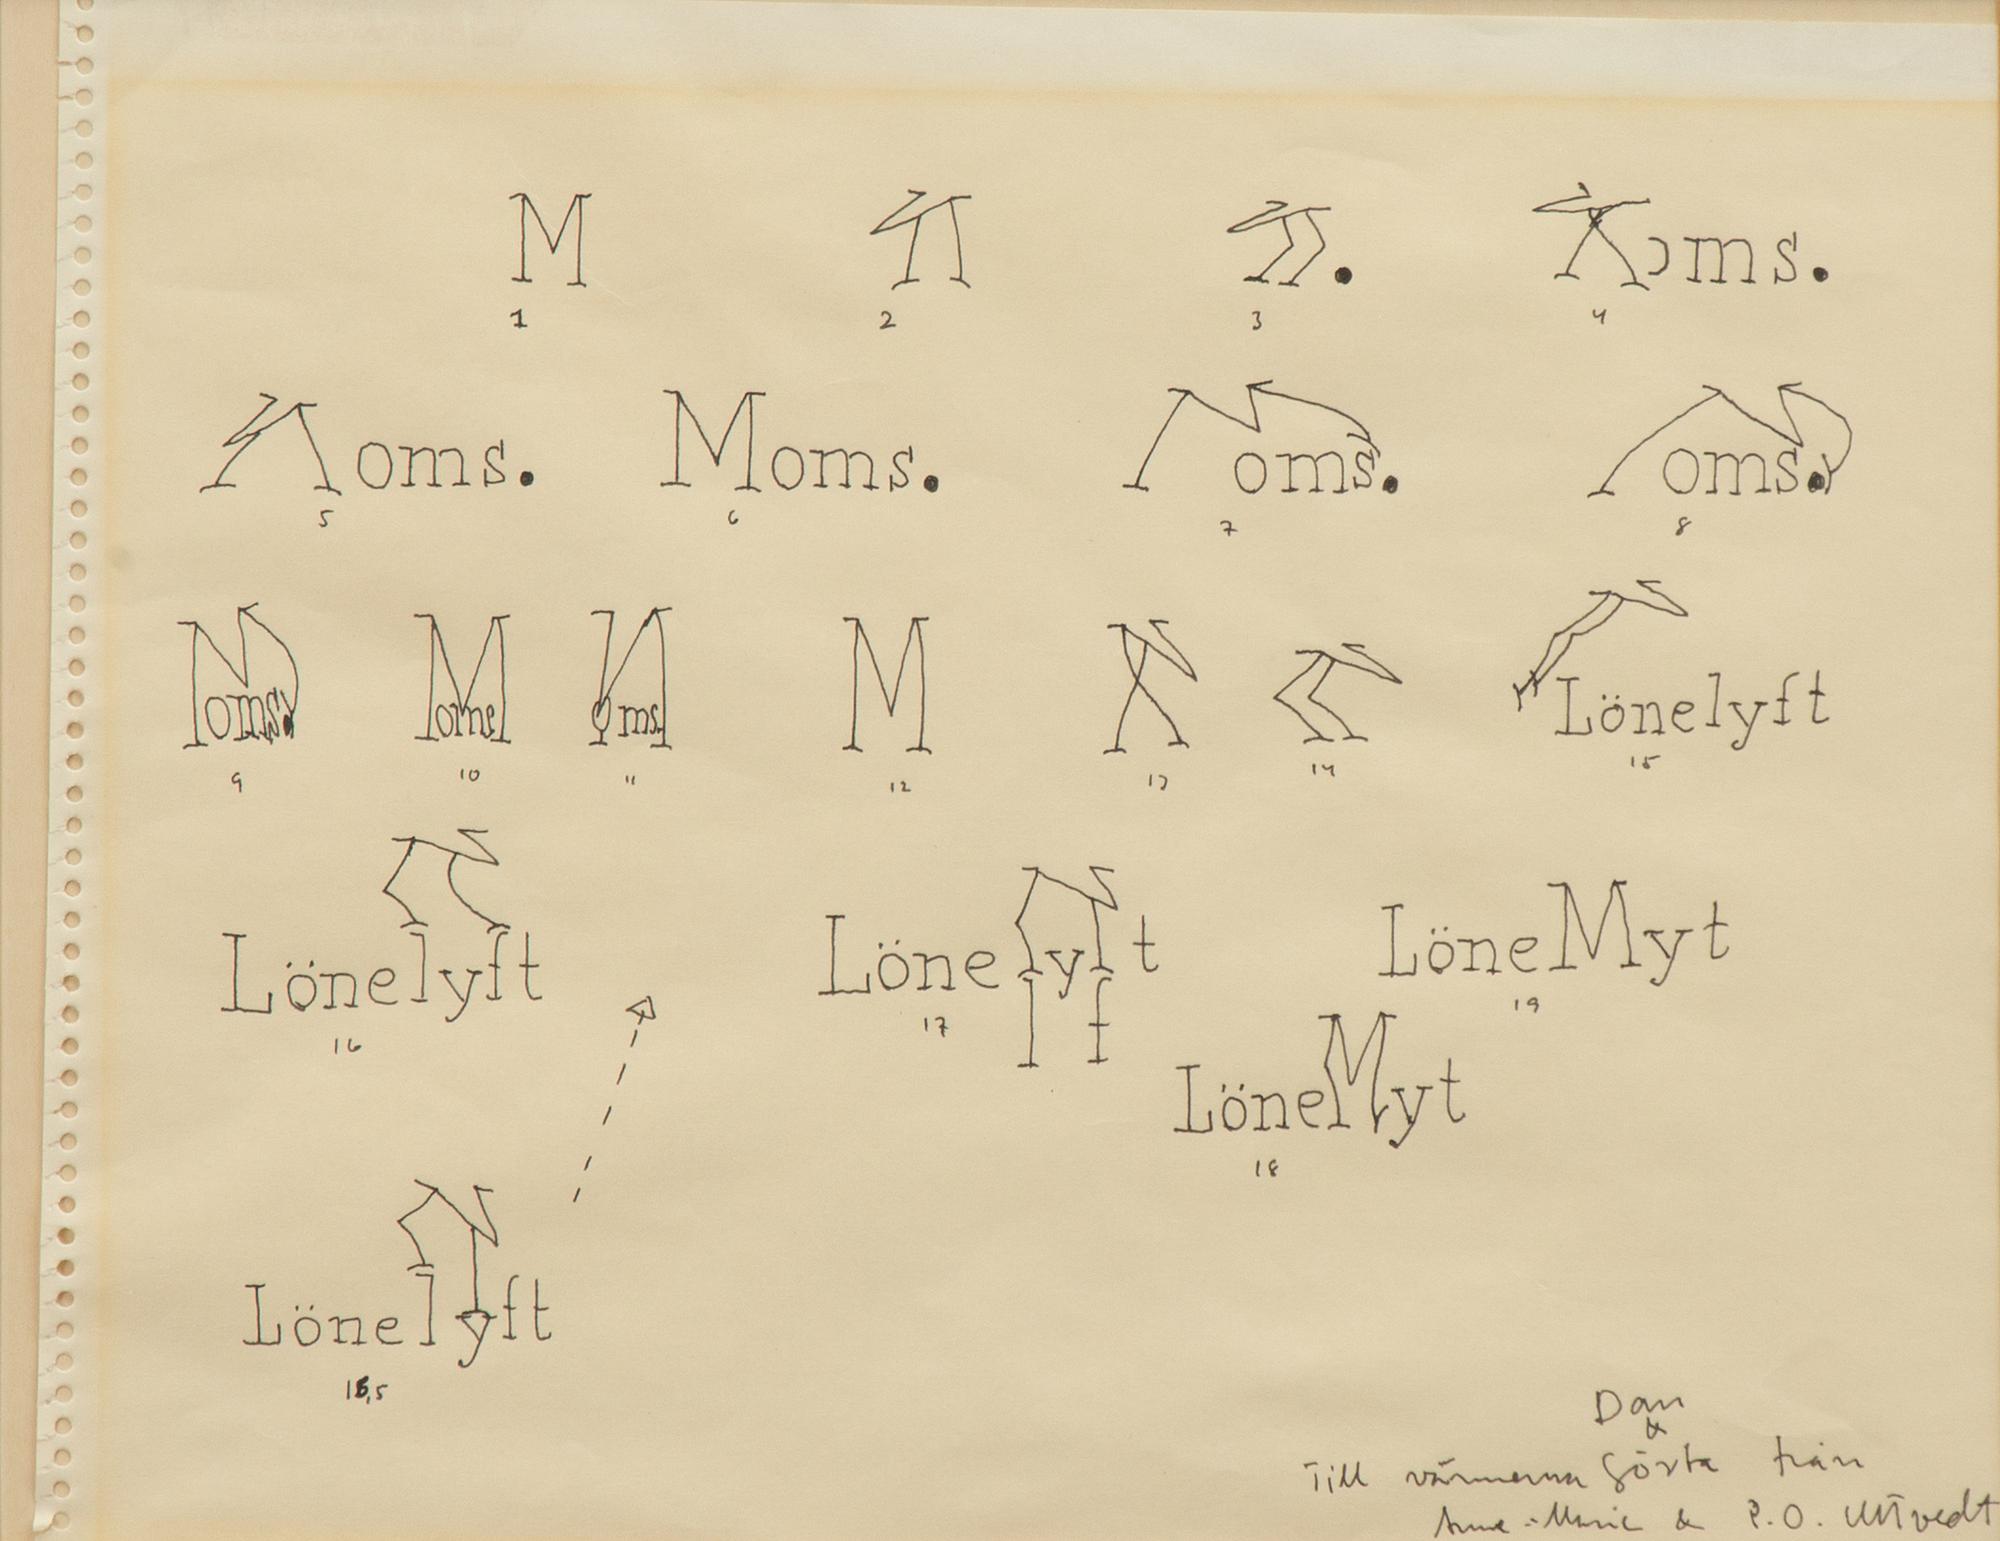 M
1
2
3
oms.
4
oms.
5
Moms.
6
oms.
7
oms.
8
Moms.
9
10
oms.
11
M
12
13
14
Lönelyft
15
Lönelyft
16
Löne y t
l f
17
LöneMyt
19
LöneMyt
18
Lönelyft
16,5
Dan
&
Till vännerna Gösta från
Anne-Marie & P.O. Ultvedt